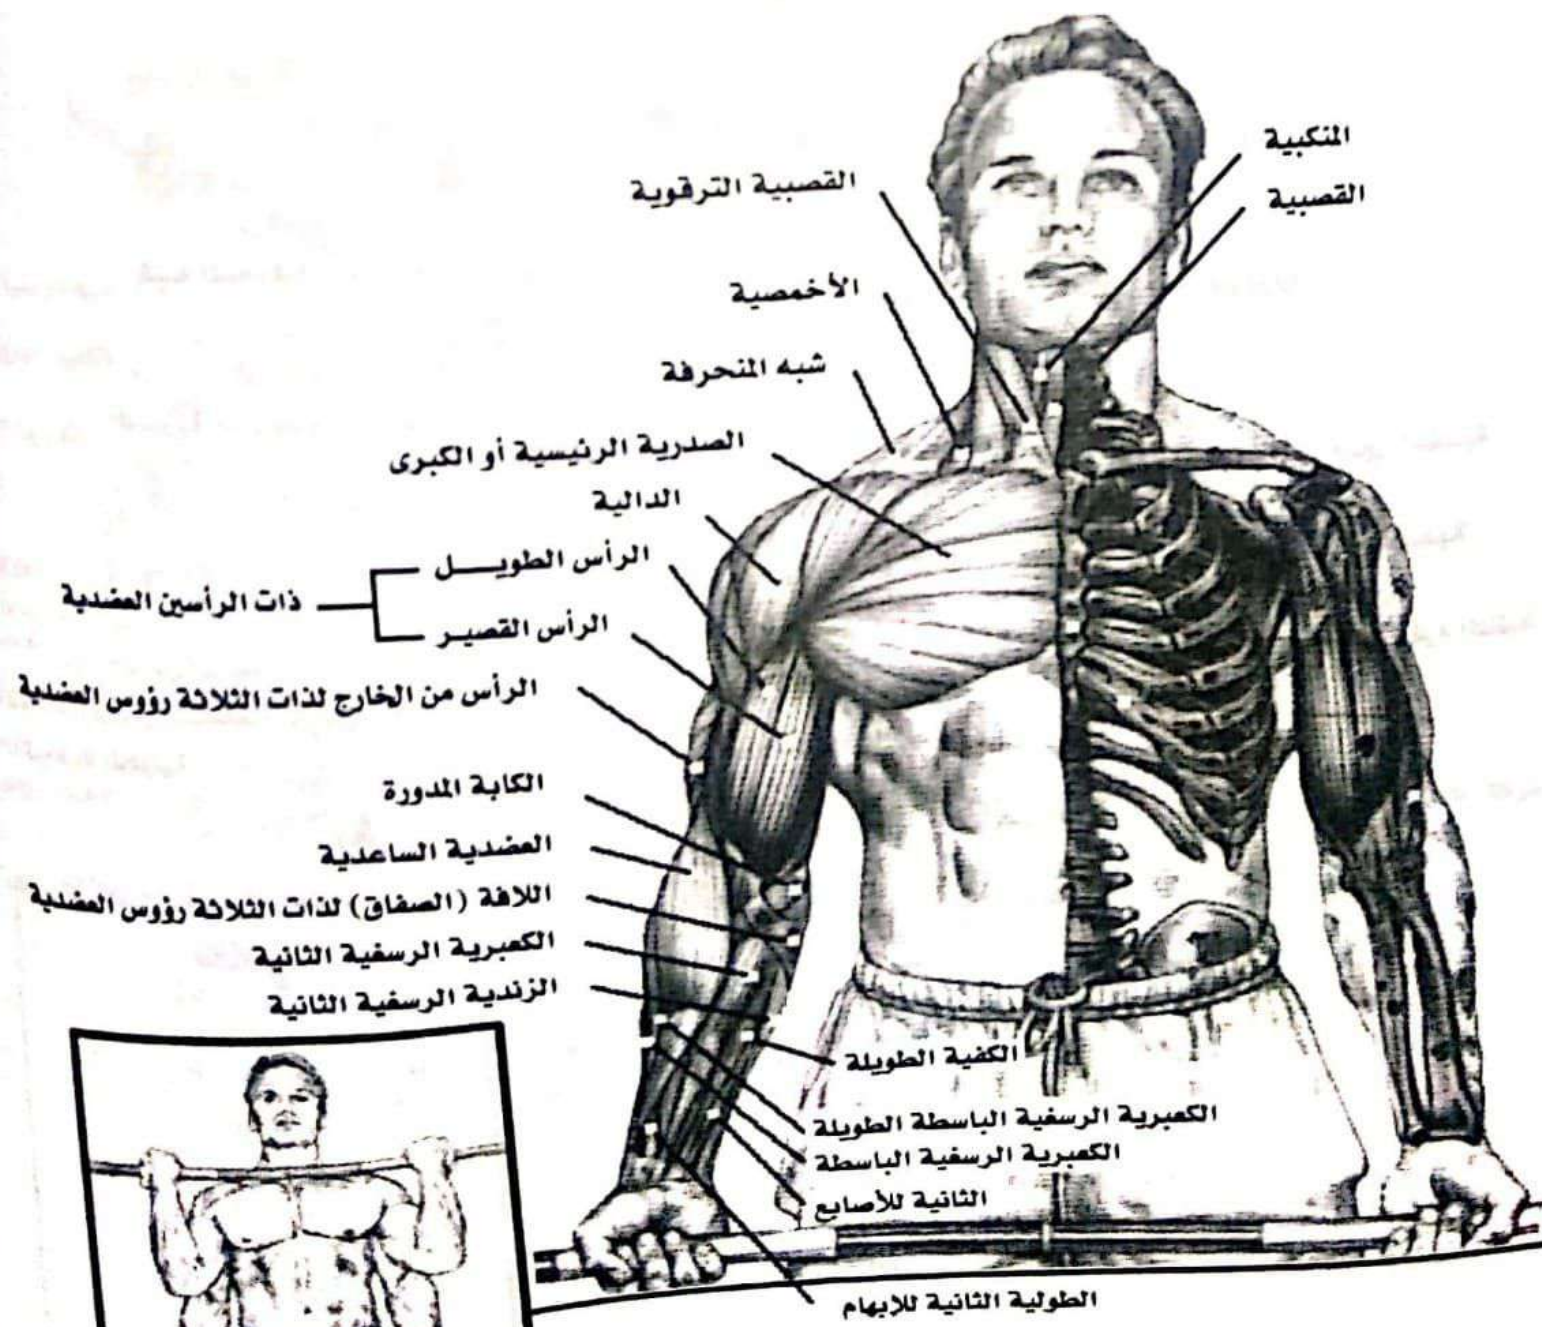 المنكبية
القصبية
القصبية الترقوية
الأخمصية
شبه المنحرفة
الصدرية الرئيسية أو الكبرى
الدالية
الرأس الطويـــل
ذات الرأسين العضدية
الرأس القصيـر
الرأس من الخارج لذات الثلاثة رؤوس العضدية
الكابة المدورة
العضدية الساعدية
اللافة (الصفاق) لذات الثلاثة رؤوس العضدية
الكعبرية الرسغية الثانية
الزندية الرسغية الثانية
الكفية الطويلة
الكعبرية الرسغية الباسطة الطويلة
الكعبرية الرسغية الباسطة
الثانية للأصابع
الطولية الثانية للإبهام